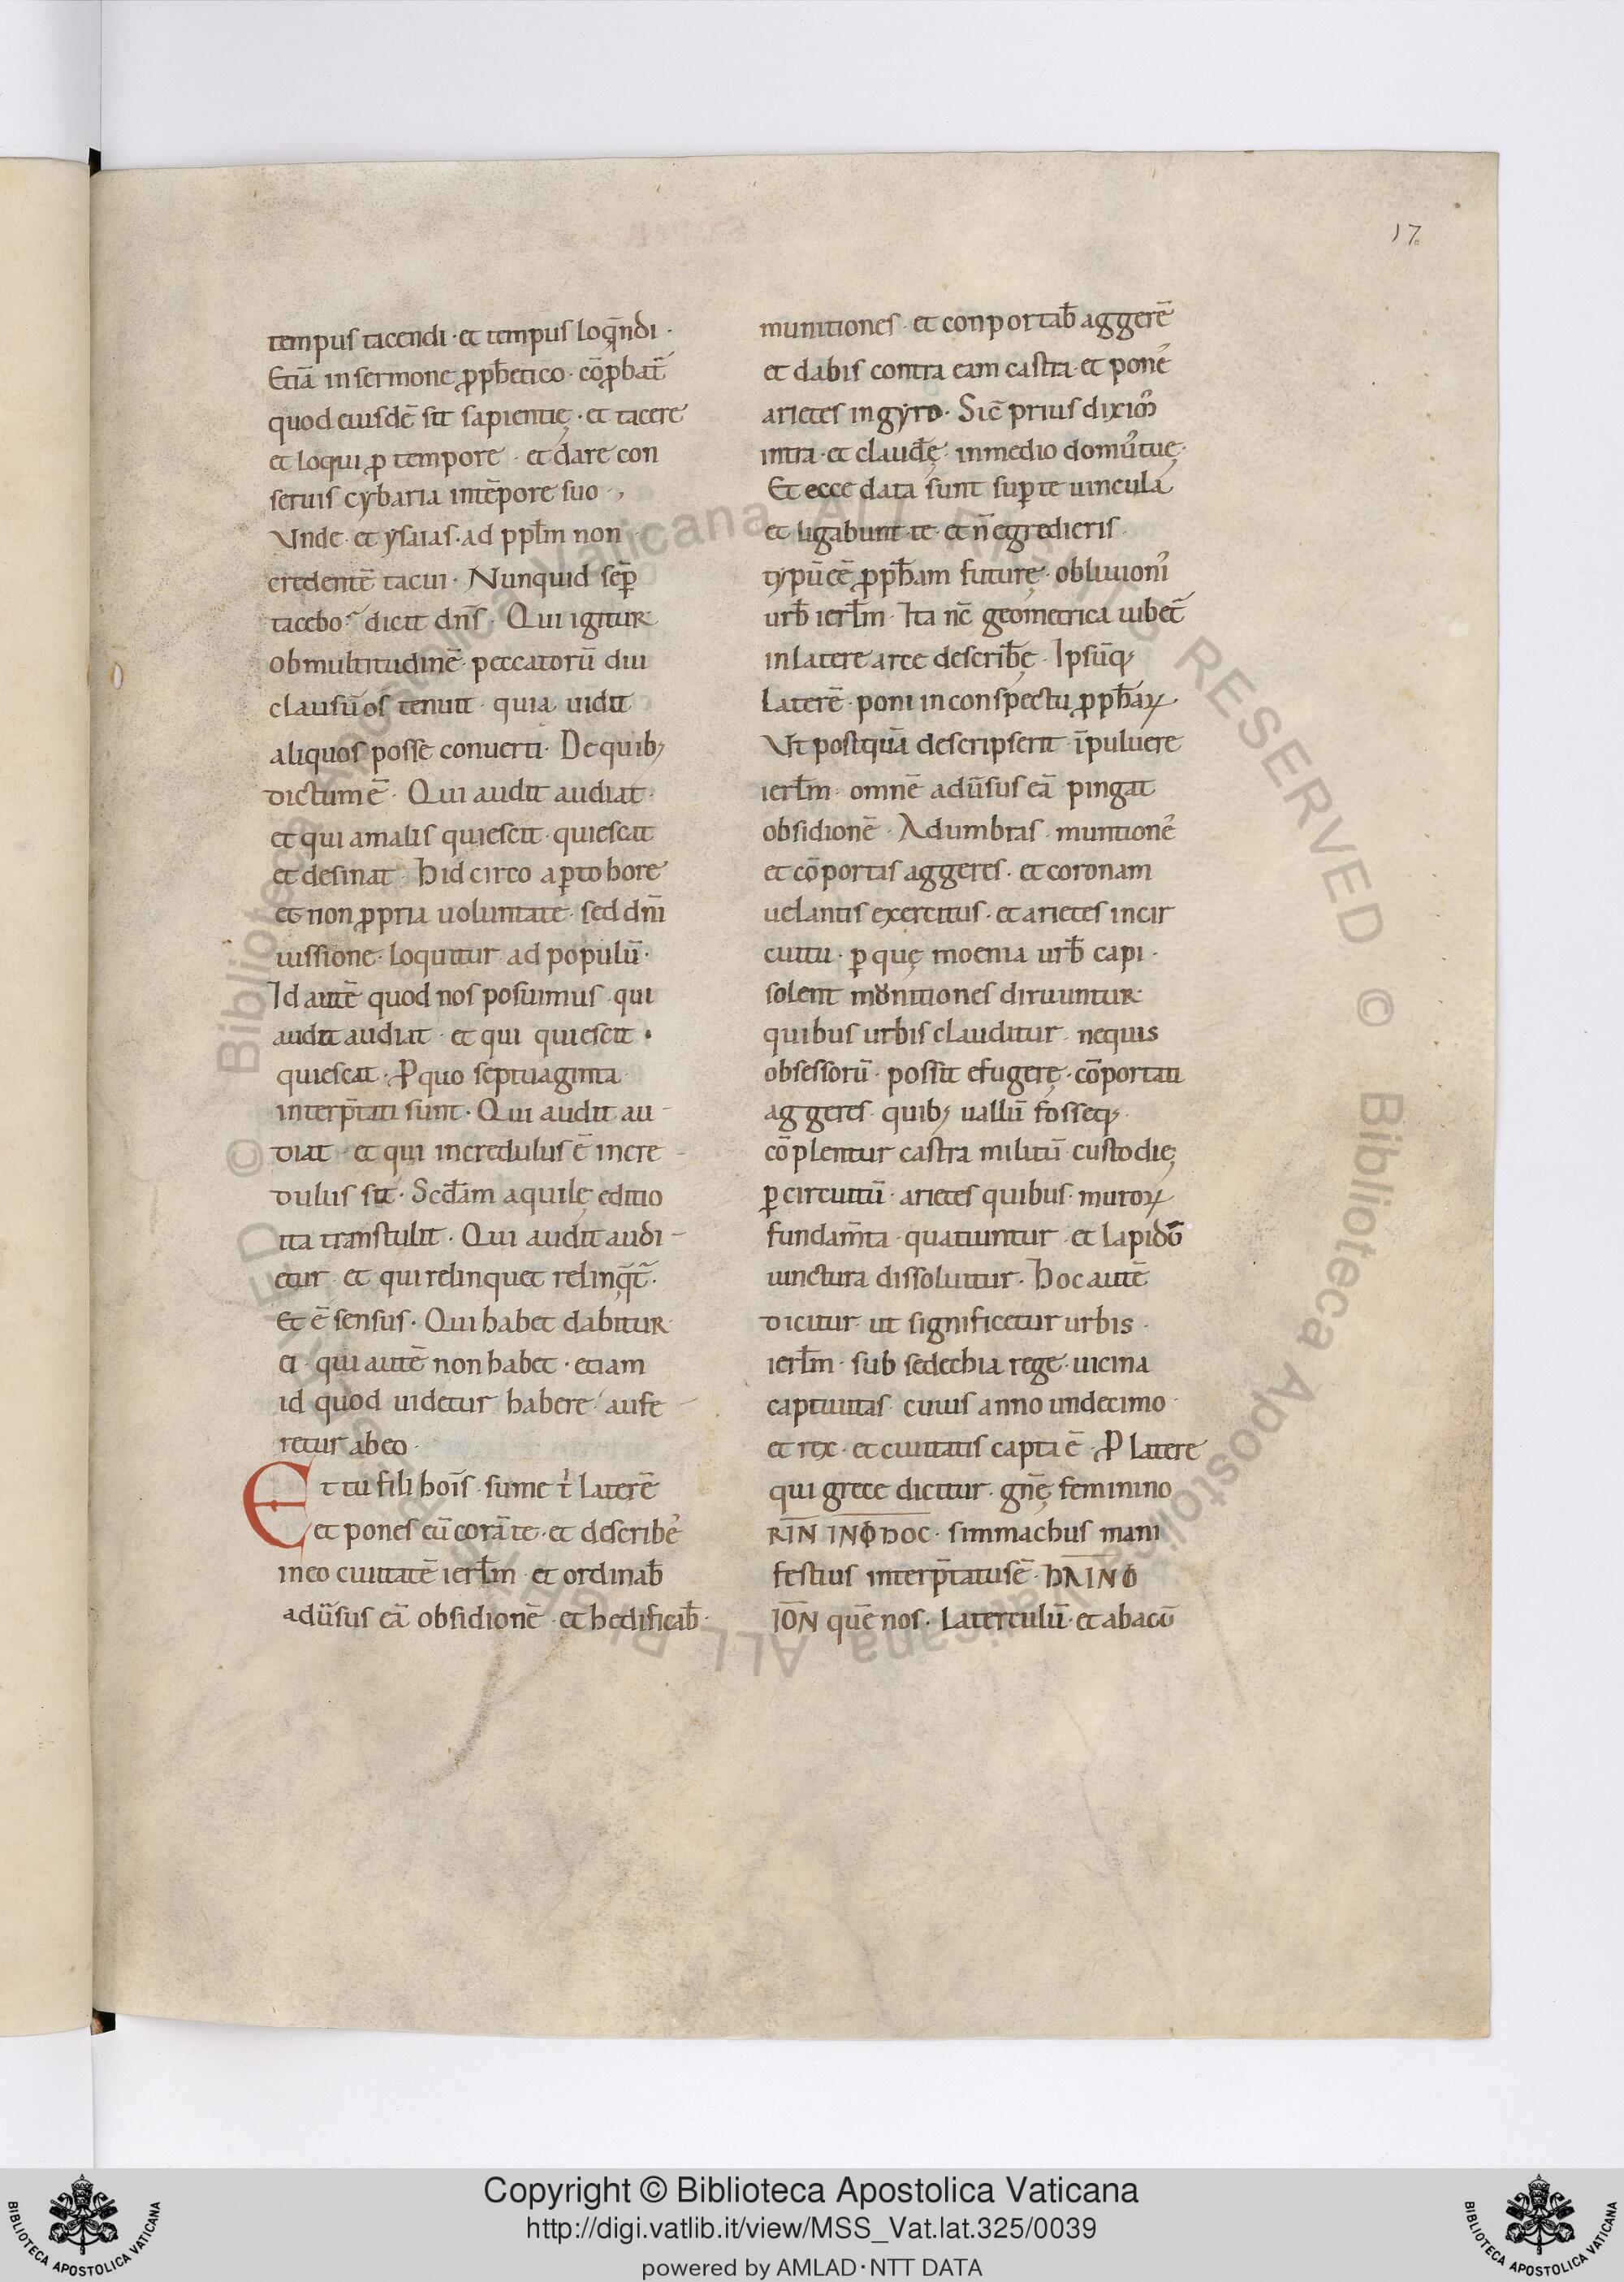 17
tempus tacendi · et tempus loq̄ndi ·
Etiā in sermone ꝓph̄etico · cōꝓbat̄
quod eiusdē sit sapientię · et tacere
et loqui ꝓ tempore · et dare con
seruis cybaria intēpore suo ·,
Vnde · et ysaias · ad ppl̄m non
credentē tacui · Nunquid sēꝑ
tacebo? dicit dn̄s · Qui igitur
ob multitudinē · peccatorū diu
clausū os tenuit · quia uidit
aliquos posse conuerti · De quibꝫ
dictum ē · Qui audit audiat ·
et qui amalis quiescit · quiescat
et desinat · hid circo aꝑto hore
et non ꝓpria uoluntate · sed dn̄i
iussione · loquitur ad populū ·
Id autē quod nos posuimus · qui
audit audiat · et qui quiescit ·
quiescat · P quo septuaginta
interp̄tati sunt · Qui audit au-
diat · et qui incredulus ē incre-
dulus sit · Scd̄am aquilę editio
ita transtulit · Qui audit audi-
etur · et qui relinquet relinq̄t̄ ·
Et ē sensus · Qui habet dabitur
ei · qui autē non habet · etiam
id quod uidetur habere · aufe-
retur ab eo ·
Et tu fili hoīs · sume t' laterē
et pones eū corā te · et describeˀ
in eo ciuitatē ierl̄m · et ordinab̄
adūsus eā obsidionē · et hedificab̄ ·
munitiones · et conportab̄ aggerē
et dabis contra eam castra · et poneˀ
arietes in gyro · Sic̄ prius diximꝰ
intra · et claud̄ę · in medio domꝰ tuę ·
Et ecce data sunt suꝑ te uincula
et ligabunt te · et n̄ egredieris ·
typū cē ꝓph̄am futurę · obliuioniˀ
urb̄ ierl̄m · Ita nc̄ geometrica iubet̄
in latere arce describ̄ę · Ipsūqꝫ
laterē · poni in conspectu ꝓph̄aꝝ ·
Vt postquā descripserit · ī puluere
ierl̄m · omnē adūsus eā pingat
obsidionē · Adumbras · muntioneˀ
et cōportas aggeres · et coronam
uelantis exercitus · et arietes incir
cuitu · ꝑ quę moenia urb̄ capi ·
solent munitiones diruuntur
quibus urbis clauditur · nequis
obsessorū · possit efugerę · cōportati
aggeres · quibꝫ uallū fosseqꝫ ·
cōplentur castra militū custodię
ꝑ circuitū · arietes quibus · muroꝝ
fundam̄ta · quatiuntur · et lapidū
iunctura dissoluitur · hoc autē
dicitur · ut significetur urbis ·
ierl̄m · sub sedechia rege · uicina
captiuitas · cuius anno undecimo
et rex · et ciuitatis capta ē · P latere
qui grece dicitur · gn̄ę feminino
RĪN INΦDOC · simmachus mani
festius interp̄tatus ē · hΛINΘ
IŌN quē nos · laterculū · et abacū
Copyright © Biblioteca Apostolica Vaticana
http://digi.vatlib.it/view/MSS_Vat.lat.325/0039
powered by AMLAD·NTT DATA